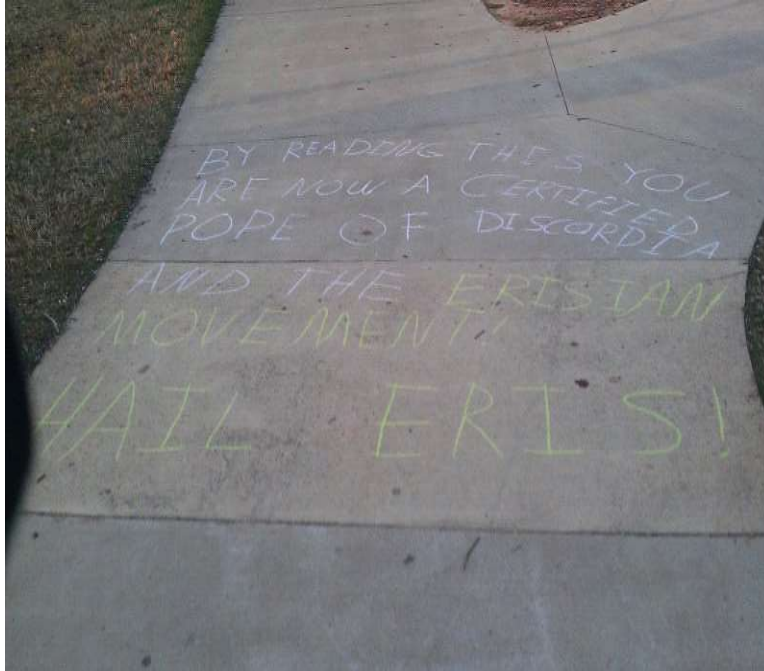 BY READING THIS YOU
ARE NOW A CERTIFIED
POPE OF DISCORDIA
AND THE ERISIAN
MOVEMENT!
HAIL ERIS!